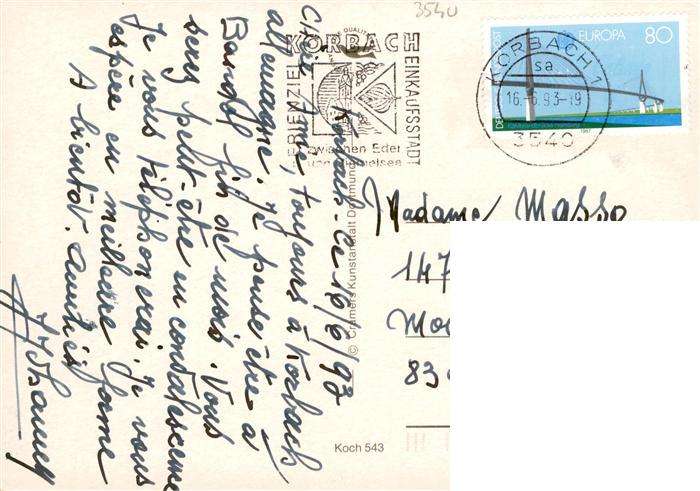 3540
KORBACH
FERIENZIEL
EINKAUFSSTADT
zwischen Eder
KORBACH 1
sa
16.-6.93-19
3540
EUROPA 80
Korbach-ce-16/6/93
Chère Amie, toujours à Korbach
allemagne. Je pense être à
Bandol fin de mois. Vous
serez petit-être en convalescence
Je vous téléphonerai. Je vous
espère en meilleure forme
A bientôt. amitiés
Madame Masso
147
Mo
83
© Cramers Kunstanstalt Dortmund
Koch 543